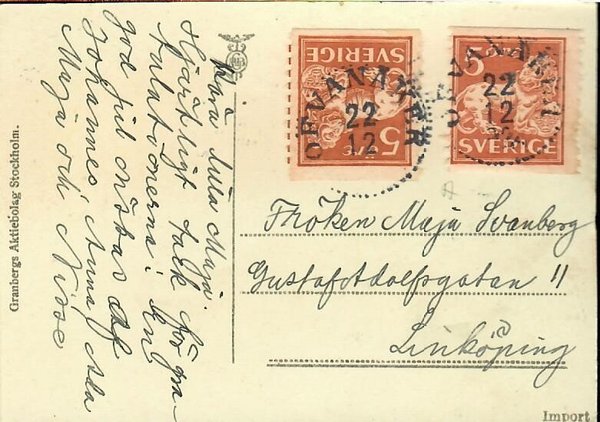 Kära lilla Maja.
Hjärtligt tack för gra-
tulationerna! En
god jul önskas af
Johannes, Anna, Ada
Maja och Nisse
Granbergs Aktiebolag Stockholm.
SVERIGE
5
SVERIGE
5
22
12
22
12
Fröken Maja Svanberg
Gustaf Adolfsgatan 11
Linköping
Import